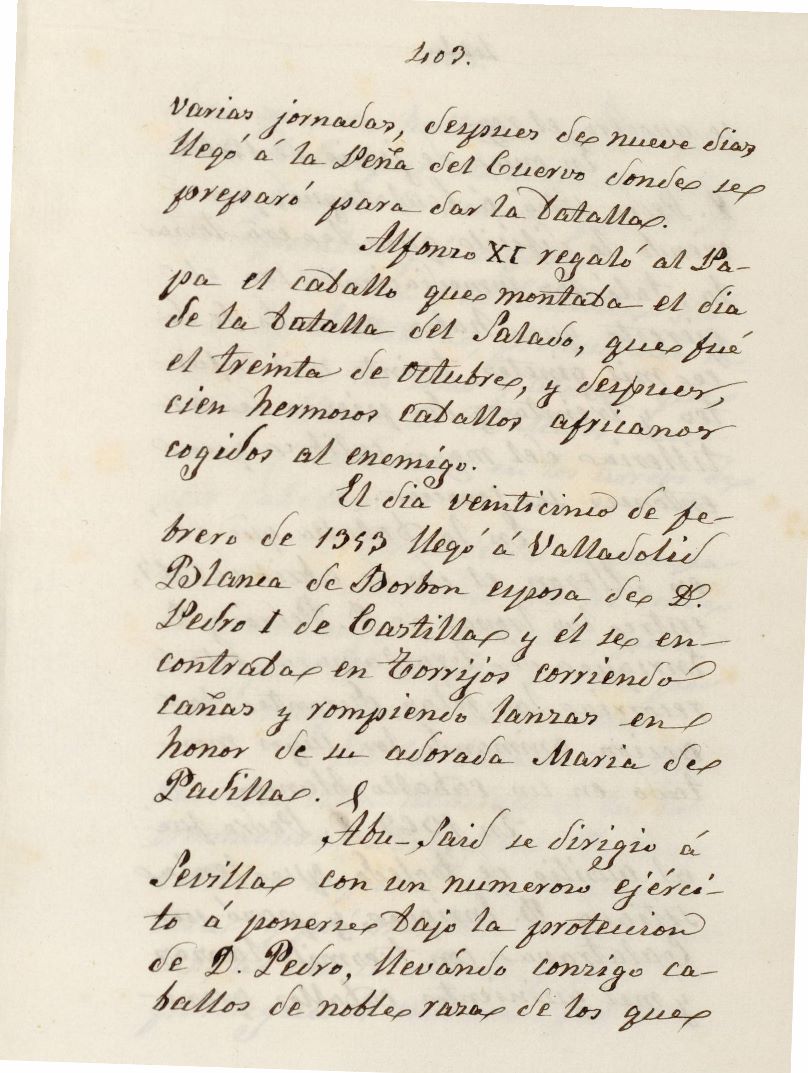 403.
varias jornadas, despues de nueve dias
llegó á la Peña del Cuervo donde se
preparó para dar la batalla.
Alfonso XI regaló al Pa-
pa el caballo que montaba el dia
de la batalla del Salado, que fué
el treinta de Octubre, y despues,
cien hermosos caballos africanos
cogidos al enemigo.
El dia veinticinco de fe-
brero de 1353 llegó á Valladolid
Blanca de Borbon esposa de D.
Pedro I de Castilla y él se en-
contraba en Torrijos corriendo
cañas y rompiendo lanzas en
honor de su adorada Maria de
Padilla.
Abu-Said se dirigio á
Sevilla con un numeroso ejérci-
to á ponerse bajo la proteccion
de D. Pedro, llevándo consigo ca-
ballos de noble raza de los que